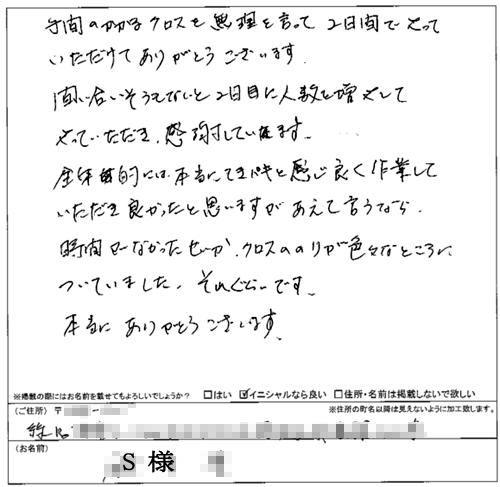 手間のかかるクロスを無理を言って2日間でやって
いただけてありがとうございます。
間に合いそうもないと2日目に人数を増やして
やっていただき、感謝しています。
全体的には本当にてきパキと感じ良く作業して
いただき良かったと思いますが あえて言うなら、
時間がなかったせいか、クロスののりが色々なところに
ついていました。それぐらいです。
本当に ありがとうございます。
※掲載の際にはお名前を載せてもよろしいでしょうか? □はい ☑イニシャルなら良い □住所・名前は掲載しないで欲しい
(ご住所) 〒 ※住所の町名以降は見えないように加工致します。
(お名前)
S 様